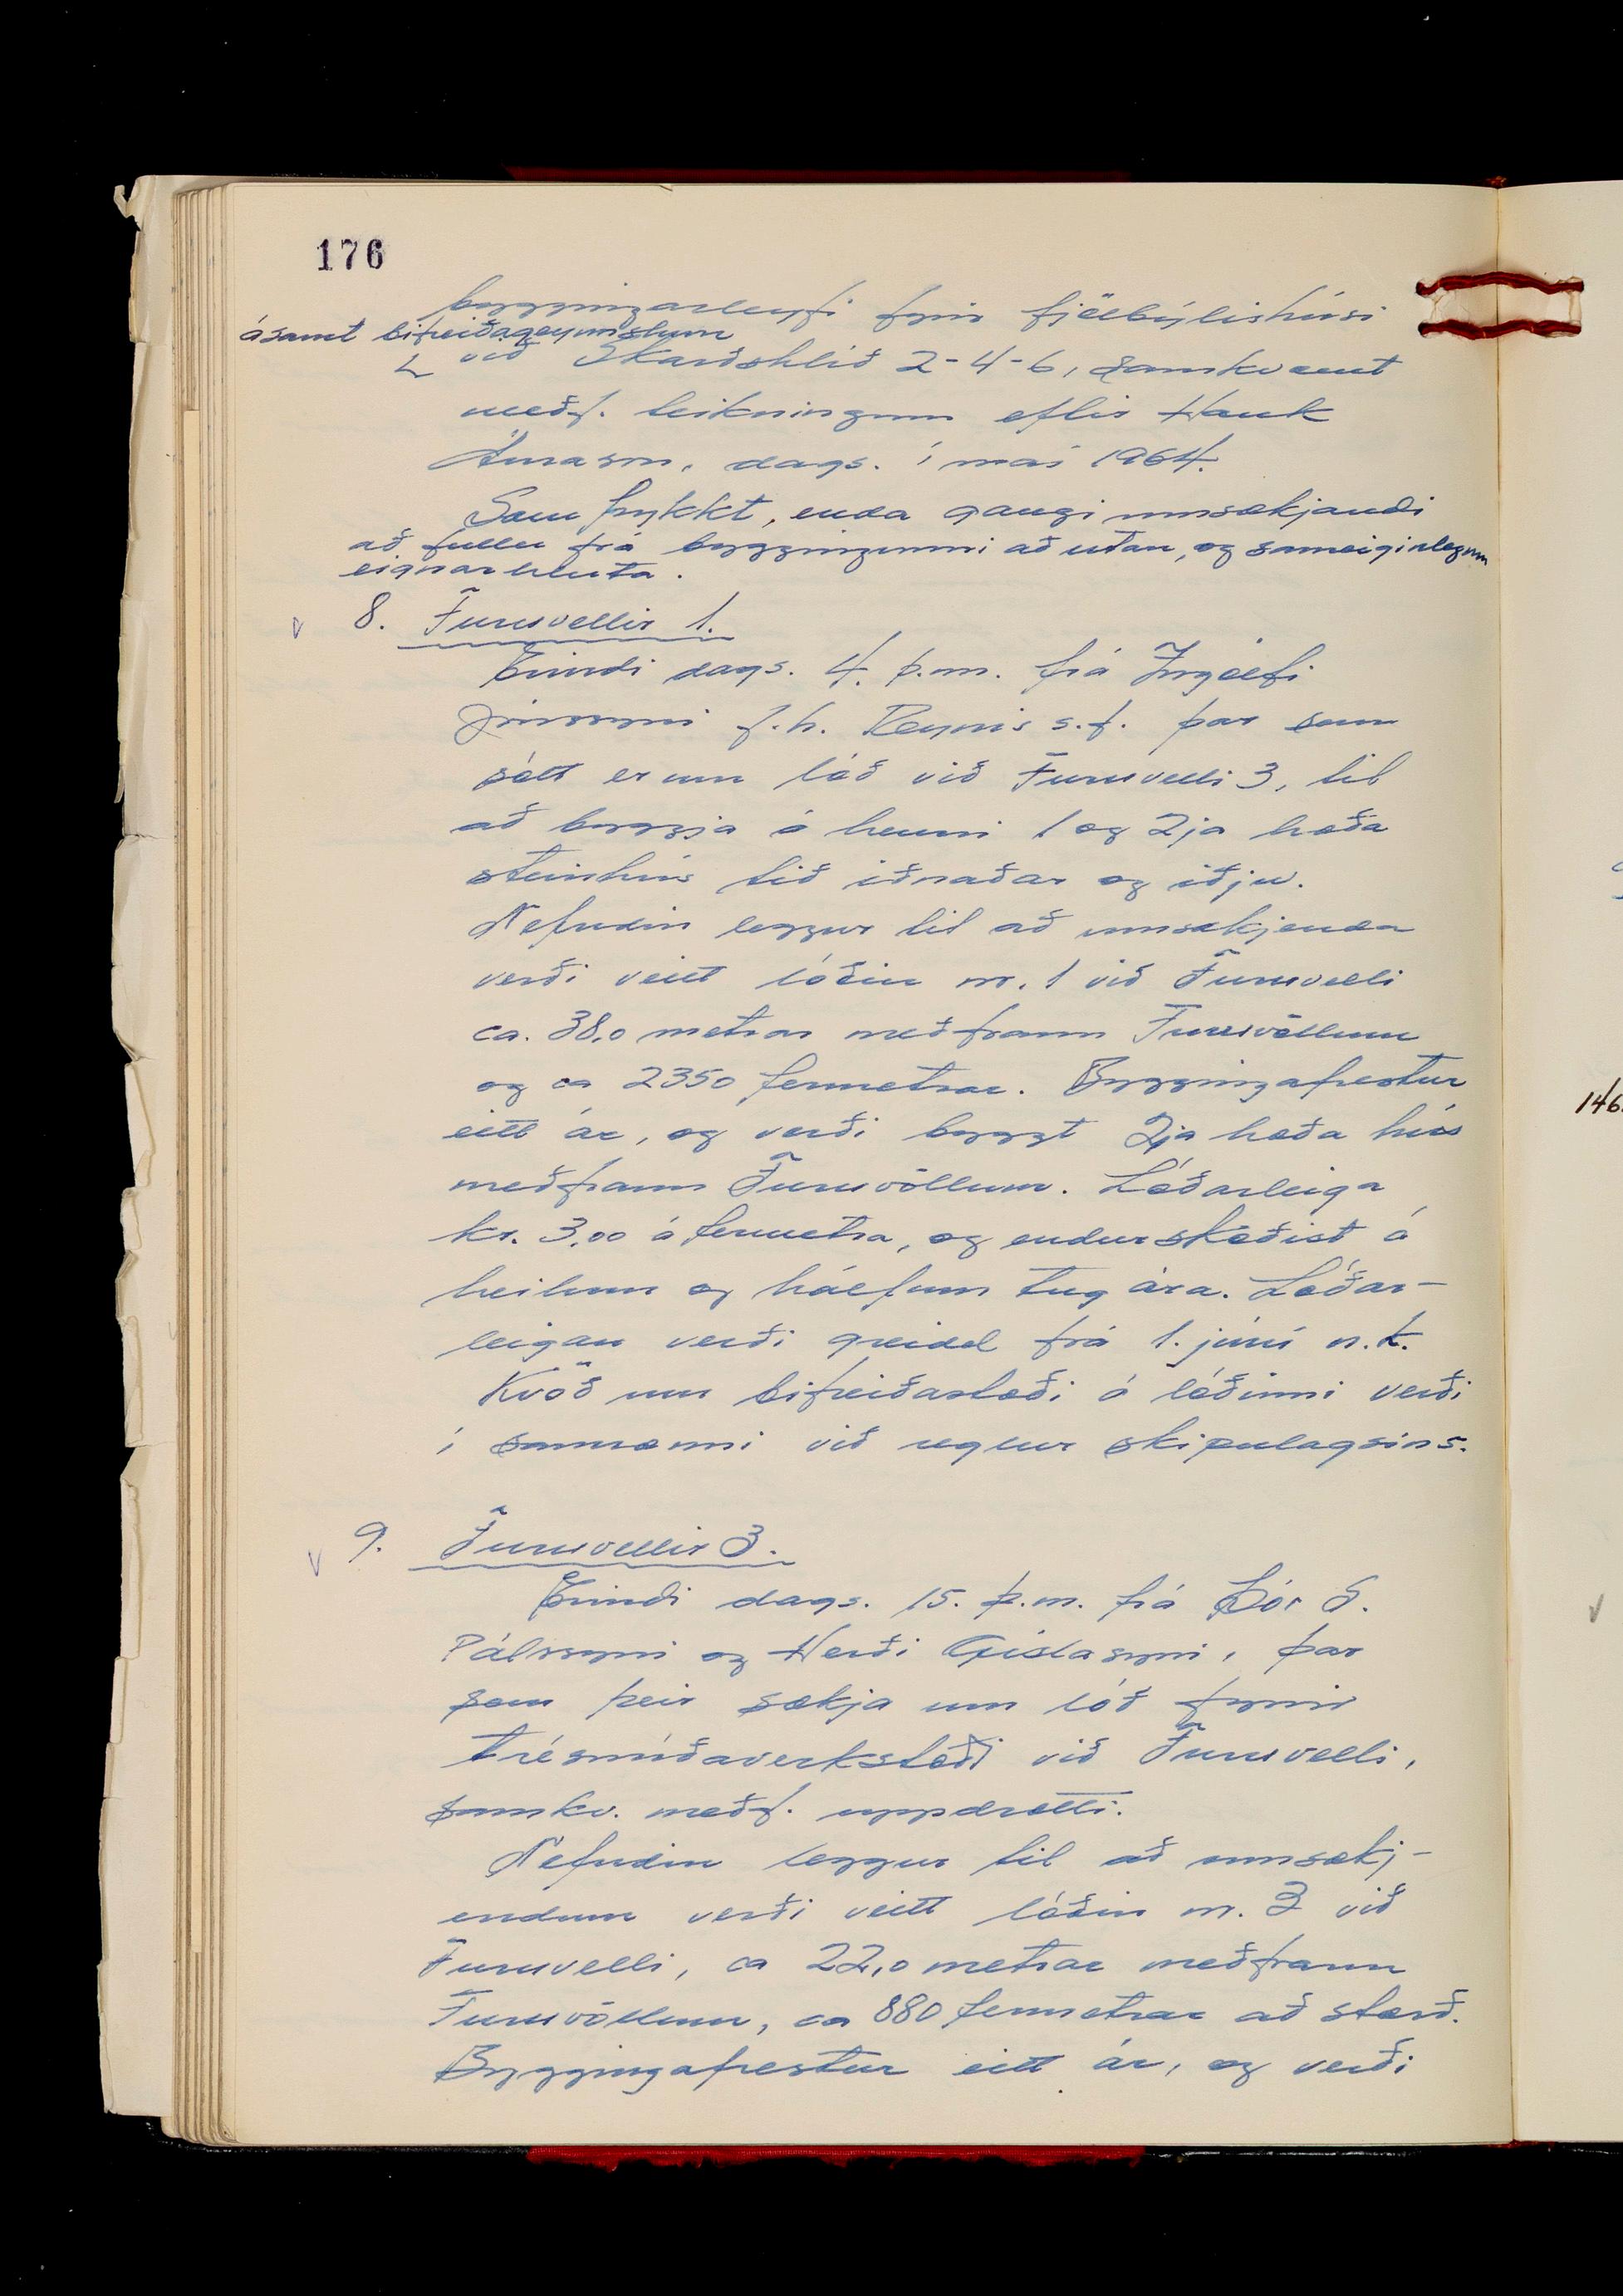 176
byggingarleyfi fyrir fjölbýlishúsi
ásamt bifreiðageymslum
við Skarðshlíð 2-4-6, samkvæmt
meðf. teikningum eftir Hauk
Árnason, dags. í maí 1964.
Samþykkt, enda gangi umsækjandi
að fullu frá byggingunni að utan, og sameiginlegum
eignarhluta.
v 8. Furuvellir 1.
Erindi dags. 4. þ.m. frá Ingólfi
Jónssyni f.h. Reynis s.f. þar sem
sótt er um lóð við Furuvelli 3, til
að byggja á henni 1 og 2ja hæða
steinhús til iðnaðar og iðju.
Nefndin leggur til að umsækjenda
verði veitt lóðin nr. 1 við Furuvelli
ca. 38,0 metrar meðfram Furuvöllum
og ca 2350 fermetrar. Byggingafrestur
eitt ár, og verði byggt 2ja hæða hús
meðfram Furuvöllum. Lóðarleiga
kr. 3,00 á fermetra, og endurskoðist á
heilum og hálfum tug ára. Lóðar-
leigan verði greidd frá 1. júní n.k.
Kvöð um bifreiðastæði á lóðinni verði
í samræmi við reglur skipulagsins.
v 9. Furuvellir 3.
Erindi dags. 15. þ.m. frá Þór S.
Pálssyni og Herði Gíslasyni, þar
sem þeir sækja um lóð fyrir
trésmíðaverkstæði við Furuvelli,
samkv. meðf. uppdrætti.
Nefndin leggur til að umsækj-
endum verði veitt lóðin nr. 3 við
Furuvelli, ca 22,0 metrar meðfram
Furuvöllum, ca 880 fermetrar að stærð.
Byggingafrestur eitt ár, og verði
146.